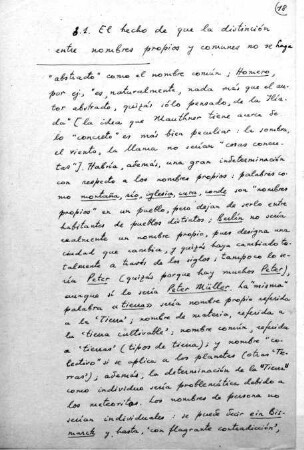 18
3.1. El hecho de que la distinción
entre nombres propios y comunes no se haga
"abstrado" como el nombre común; Homero,
por ej., "es, naturalmente, nada más que el au-
tor abstrado, quizás sólo pensado, de la Ilía-
da" [la idea que Mauthner tiene acerca de
lo "concreto" es más bien peculiar: la sombra,
el viento, la llama no serían "cosas concre-
tas"]. Habría, además, una gran indeterminación
con respecto a los nombres propios: palabras
como montaña, río, iglesia, cura, conde son "nombres
propios" en un pueblo, pero dejan de serlo entre
habitantes de pueblos distintos; Berlín no sería
realmente un nombre propio, pues designa una
ciudad que cambia, y quizás haya cambiado to-
talmente a través de los siglos; tampoco lo se-
ría Peter (quizás porque hay muchos Peter),
aunque sí lo sería Peter Müller. La misma
palabra tierra sería nombre propio referida
a la 'Tierra'; nombre de materia, referida a
la 'tierra cultivable'; nombre común, referida
a 'tierras' (tipos de tierra); y nombre "co-
lectivo" si se aplica a los planetas (otras 'Tie-
rras'); además, la determinación de la "Tierra"
como individuo sería problemática debido a
los meteoritos. Los nombres de persona no
serían individuales: se puede decir ein Bis-
marck y hasta, 'con flagrante contradicción',